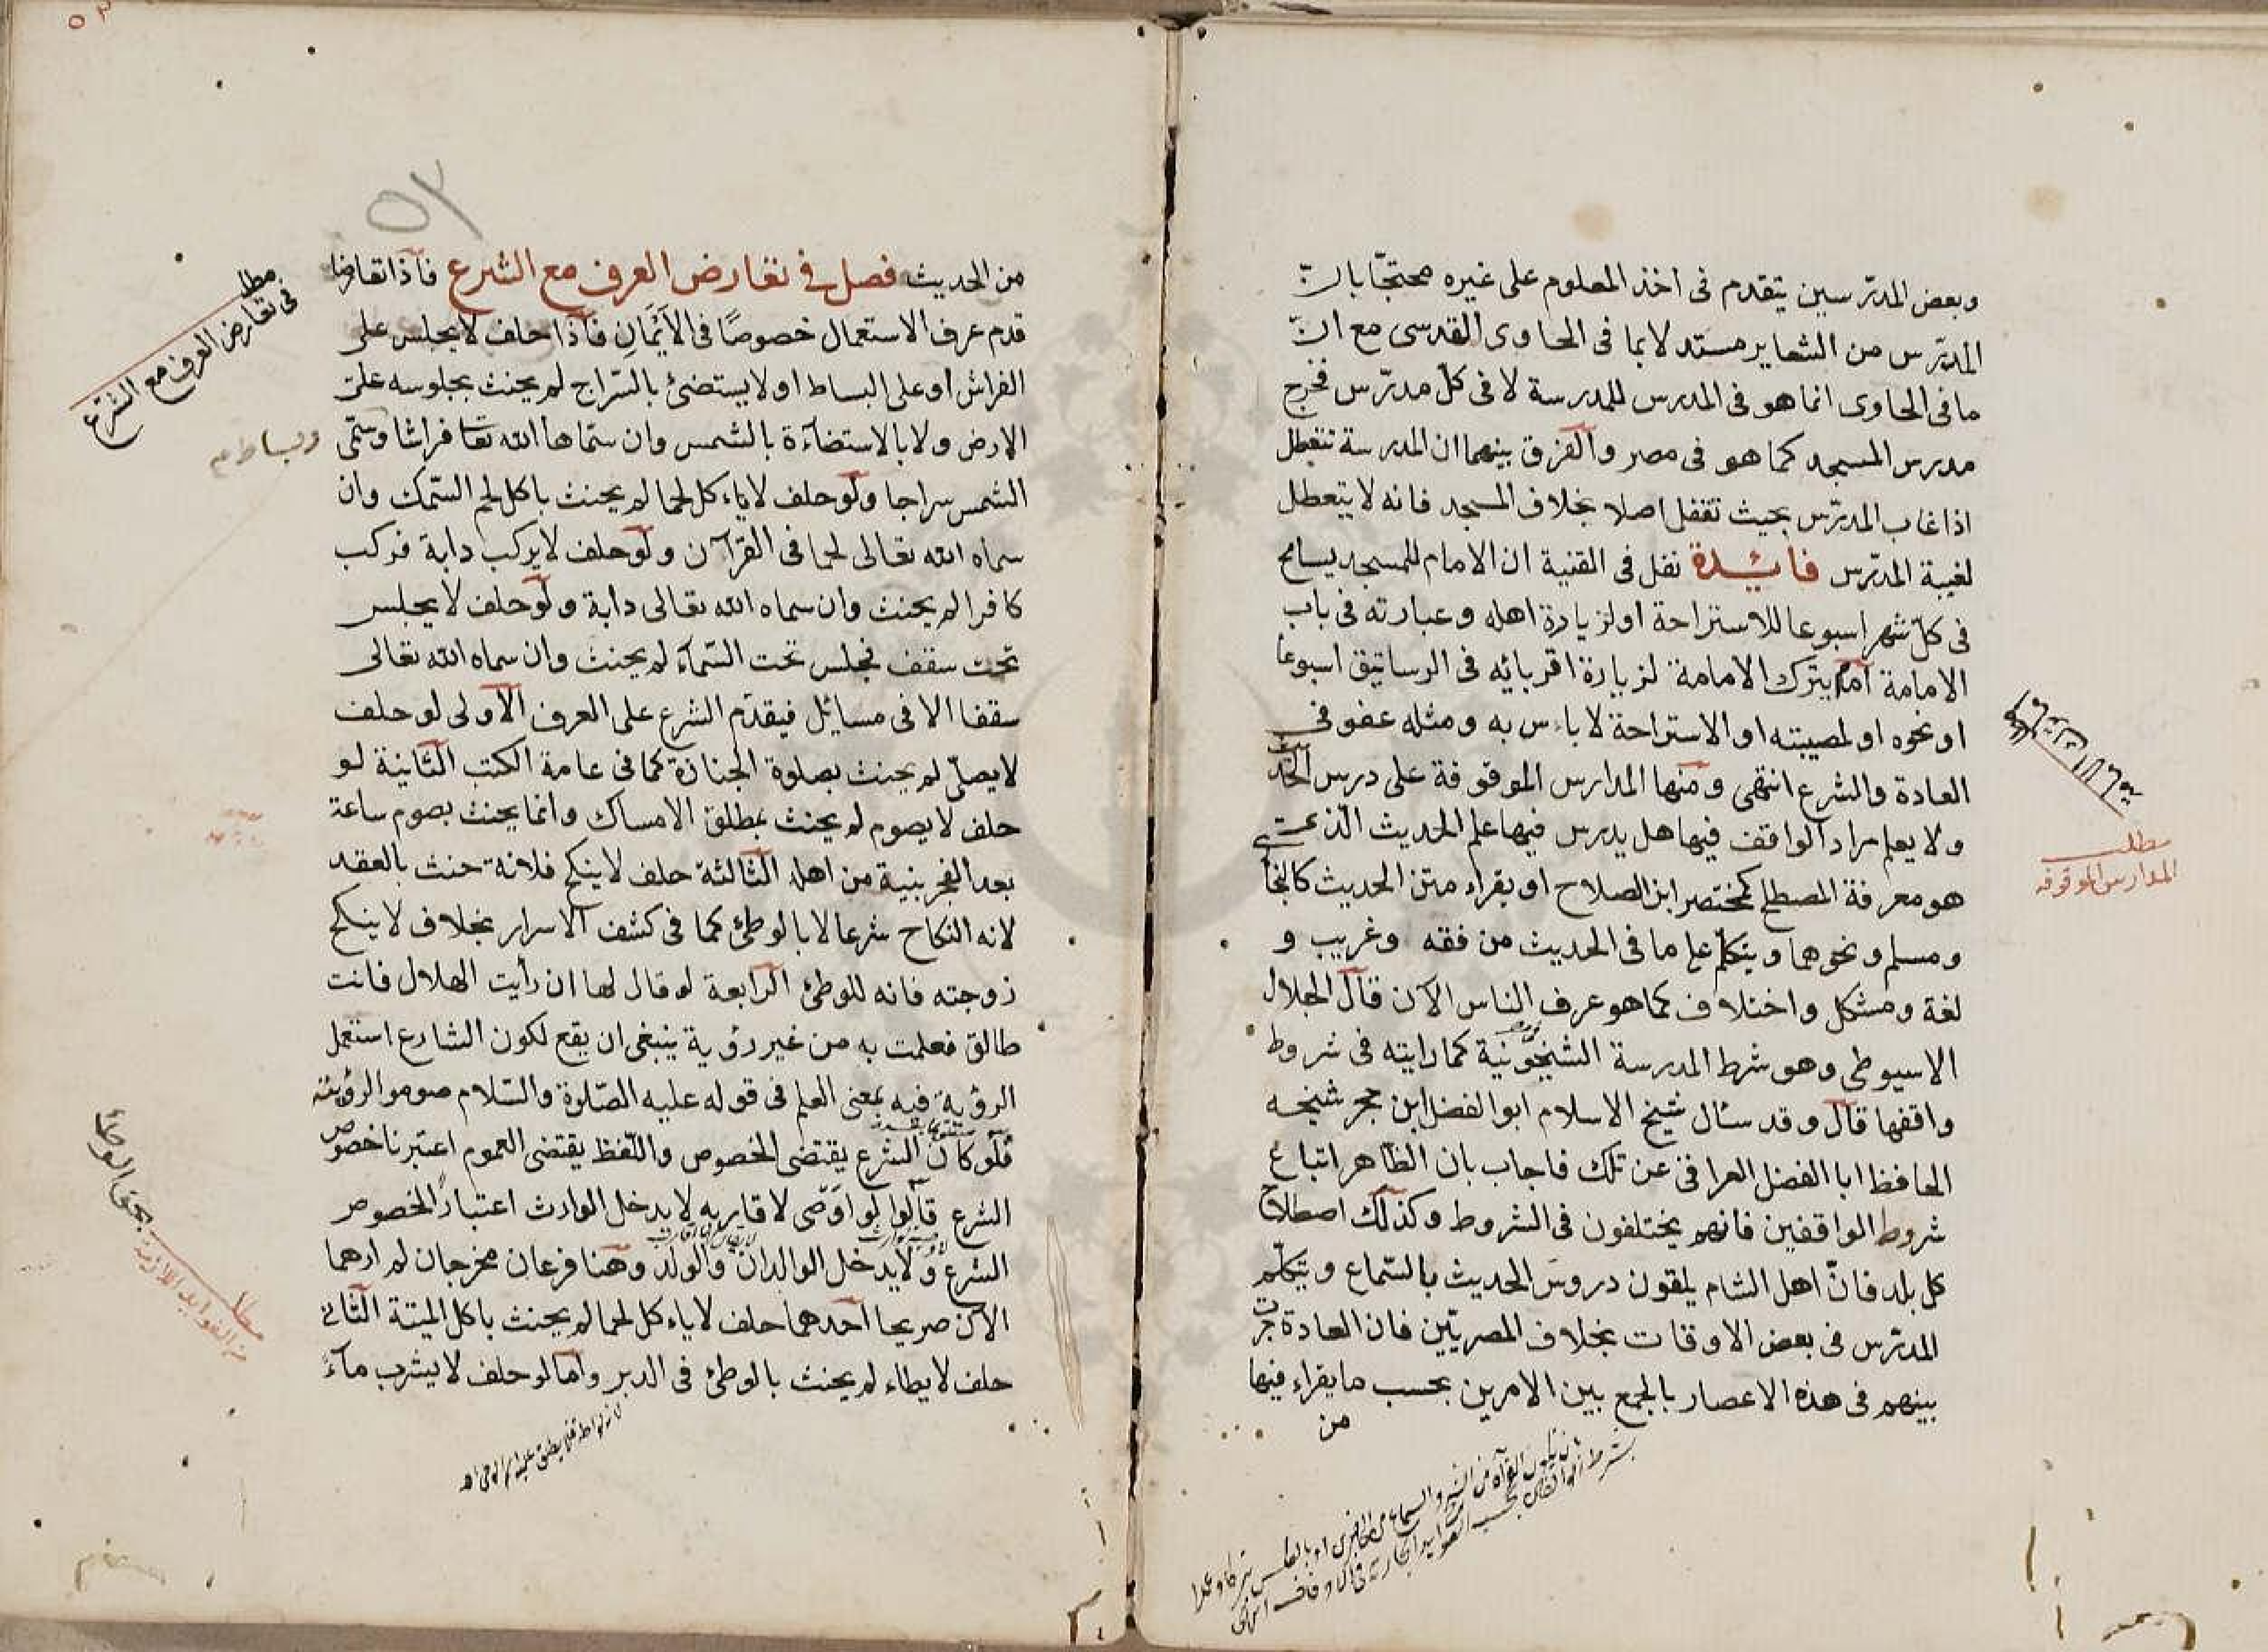 وبعض المدرّسين يتقدم فى اخذ المعلوم على غيره محتجّا بانّ
المدرّس من الشعاير مستدلا بما فى الحاوى القدسى مع انّ
ما فى الحاوى انما هو فى المدرس للمدرسة لا فى كلّ مدرّس فخرج
مدرس المسجد كما هو فى مصر والفرق بينهما ان المدرسة تتعطل
اذا غاب المدرّس بحيث تقفل اصلا بخلاف المسجد فانه لا يتعطل
لغيبة المدرّس فائدة نقل فى القنية ان الامام للمسجد يسامح
فى كلّ شهر اسبوعا للاستراحة او لزيارة اهله وعبارته فى باب
الامامة امام يترك الامامة لزيارة اقربائه فى الرساتيق اسبوعا
او نحوه او لمصيبته او الاستراحة لا باءس به ومثله عفو فى
العادة والشرع انتهى ومنها المدارس الموقوفة على درس الحديث
ولا يعلم مراد الواقف فيها هل يدرس فيها علم الحديث الّذى
هو معرفة المصطلح كمختصر ابن الصلاح او يقراء متن الحديث كالبخا
ومسلم ونحوهما ويتكلّم على ما فى الحديث من فقه وغريب و
لغة ومشكل واختلاف كما هو عرف الناس الآن قال الجلال
الاسيوطى وهو شرط المدرسة الشيخونية كما رايته فى شروط
واقفها قال وقد سئال شيخ الاسلام ابو الفضل ابن حجر شيخه
الحافظ ابا الفضل العراقى عن تلك فاجاب بان الظاهر اتباع
شروط الواقفين فانهم يختلفون فى الشروط وكذلك اصطلاح
كل بلد فانّ اهل الشام يلقون دروسَ الحديث بالسّماع ويتكلّم
المدرّس فى بعض الاوقات بخلاف المصريّين فان العادة جرت
بينهم فى هذه الاعصار بالجمع بين الامرين بحسب ما يقراء فيها
من
مطلب
المدارس الموقوفه
٥٣
٥٢
من الحديث فصل فى تعارض العرف مع الشرع فاذا تعارضا
قدم عرف الاستعمال خصوصًا فى الاَيْمَانِ فاذا حلف لا يجلس على
الفراش او على البساط او لا يستضئ بالسّراج لم يحنث بجلوسه على
الارض ولا بالاستضآءة بالشمس وان سمّاها الله تعا فراشا وسمّى
الشمس سراجا ولو حلف لا ياءكل لحما لم يحنث باكل لحم السّمك وان
سماه الله تعالى لحما فى القرآن ولو حلف لا يركب دابة فركب
كافرا لم يحنث وان سماه الله تعالى دابة ولو حلف لا يجلس
تحت سقف فجلس تحت السّمآء لم يحنث وان سماه الله تعالى
سقفا الا فى مسائل فيقدّم الشرع على العرف الاولى لو حلف
لا يصلّى لم يحنث بصلوة الجنازة كما فى عامة الكتب الثّانية لو
حلف لا يصوم لم يحنث بمطلق الامساك وانما يحنث بصوم ساعة
بعد الفجر بنية من اهله الثّالثة حلف لا ينكح فلانة حنث بالعقد
لانه النكاح شرعا لا بالوطئ كما فى كشف الاسرار بخلاف لا ينكح
زوجته فانه للوطئ الرّابعة لو قال لها ان رأيت الهلال فانت
طالق فعلمت به من غير رؤية ينبغى ان يقع لكون الشارع استعمل
الرؤية فيه بمعنى العلم فى قوله عليه الصّلوة والسّلام صوموا لرؤيته
فلو كان الشرع يقتضى الخصوص واللّفظ يقتضى العموم اعتبرنا خصوص
الشرع قالوا لو اوَصّى لاقاربه لا يدخل الوارث اعتبارًا لخصوص
الشرع ولا يدخل الوالدان والولد وهنا فرعان مخرجان لم ارهما
الآن صريحا احدهما حلف لا ياءكل لحما لم يحنث باكل الميتة الثّانى
حلف لا يطاء لم يحنث بالوطئ فى الدبر واما لو حلف لا يشرب مآءً
مطلب
فى تعارض العرف مع الشرع
وبساط م
مطلب